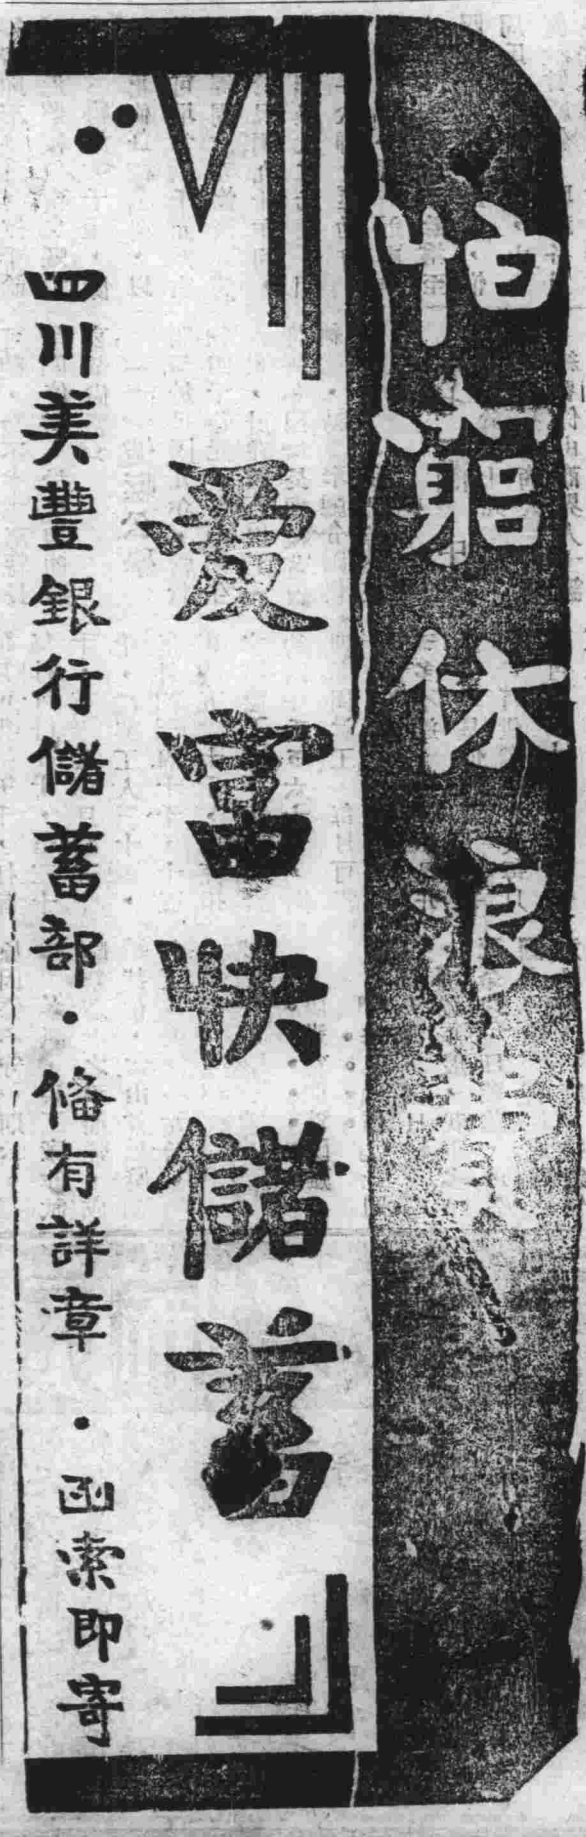 怕窮休浪費
愛富快儲蓄
四川美豐銀行儲蓄部·備有詳章·函索即寄